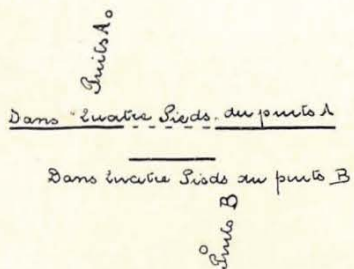 Puits A
Dans Quatre Pieds du puits A
Dans Quatre Pieds du puits B
Puits B